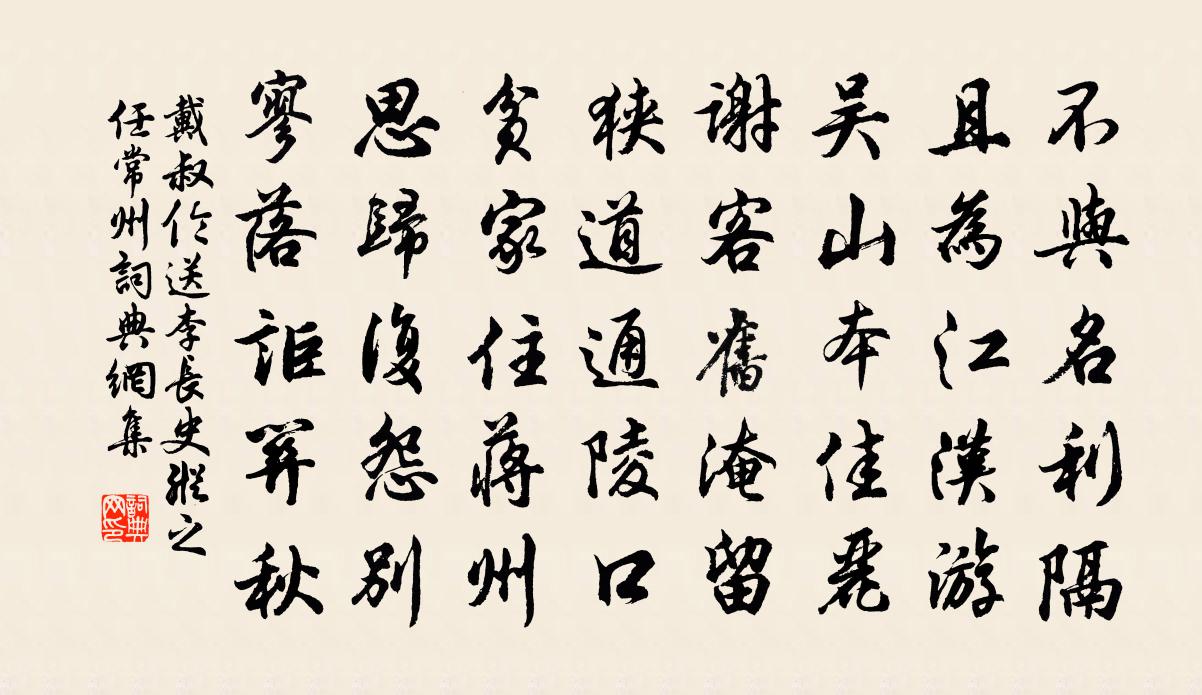 不與名利隔
且為江漢游
吴山本佳麗
謝客舊淹留
狹道通陵口
貧家住蔣州
思歸復怨别
寥落詎關秋
戴叔倫送李長史縱之
任常州詞典網集
詞典网印